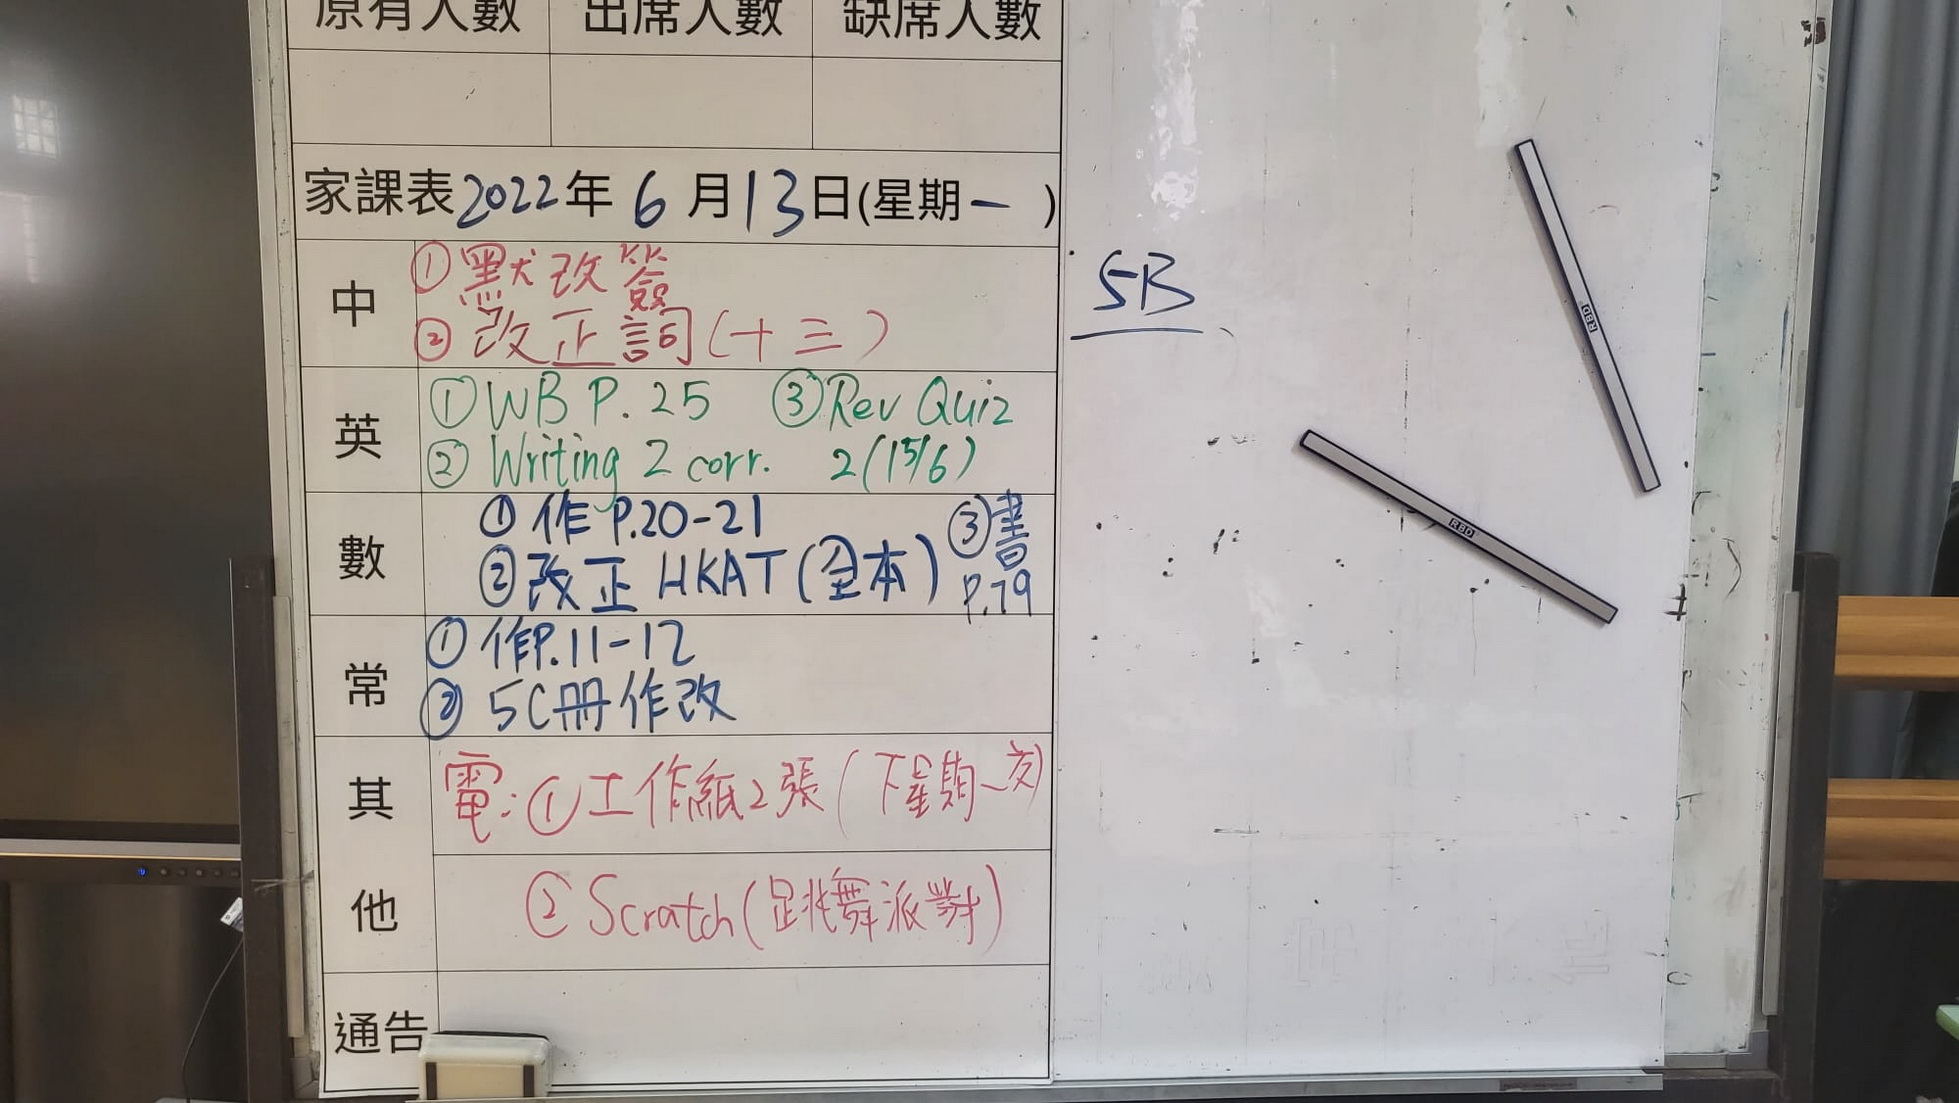 原有人數 出席人數 缺席人數
家課表2022年 6 月13日(星期一 )
5B
中
①默改簽
②改正詞(十三)
英
①WB P.25 ③Rev Quiz
②Writing 2 corr. 2(15/6)
數
①作 P.20-21 ③書
②改正 HKAT(全本) P.79
常
①作P.11-12
②5C冊作改
其他
電:①工作紙2張(下星期一交)
②Scratch(跳舞派對)
通告
RBD
RBD